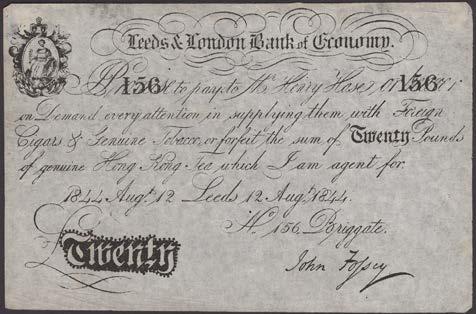 Leeds & London Bank of Economy.
I Promise to pay to Mr. Henry Hase, or Bearer
156 156
on Demand every attention in supplying them with Foreign
Cigars & Genuine Tobacco, or forfeit the sum of Twenty Pounds
of genuine Hong Kong Tea which I am agent for.
1844 Augt. 12 Leeds 12 Augt. 1844.
No. 156, Briggate.
£Twenty
John Fossey